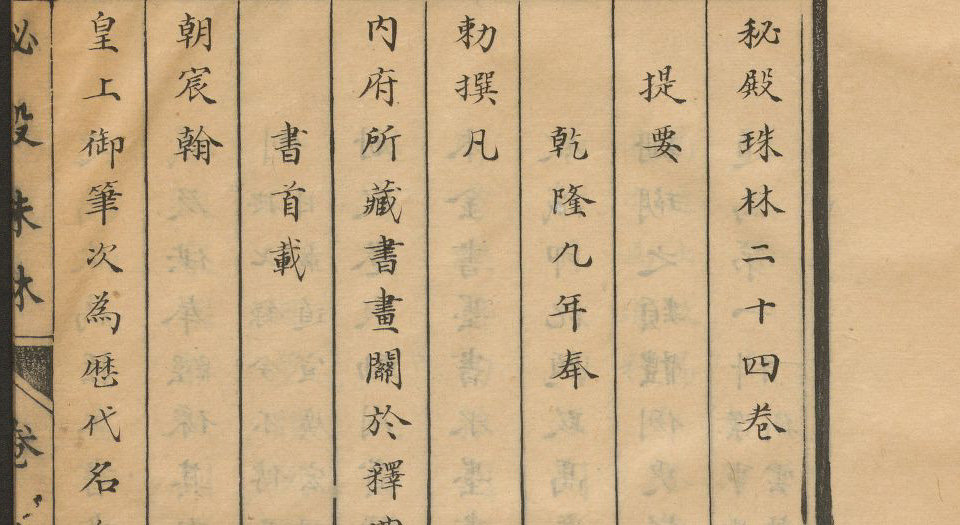 秘殿珠林二十四卷
提要
乾隆九年奉
勅撰凡
内府所藏書畫關於釋
書首載
朝宸翰
皇上御筆次為歷代名
殿珠林
卷